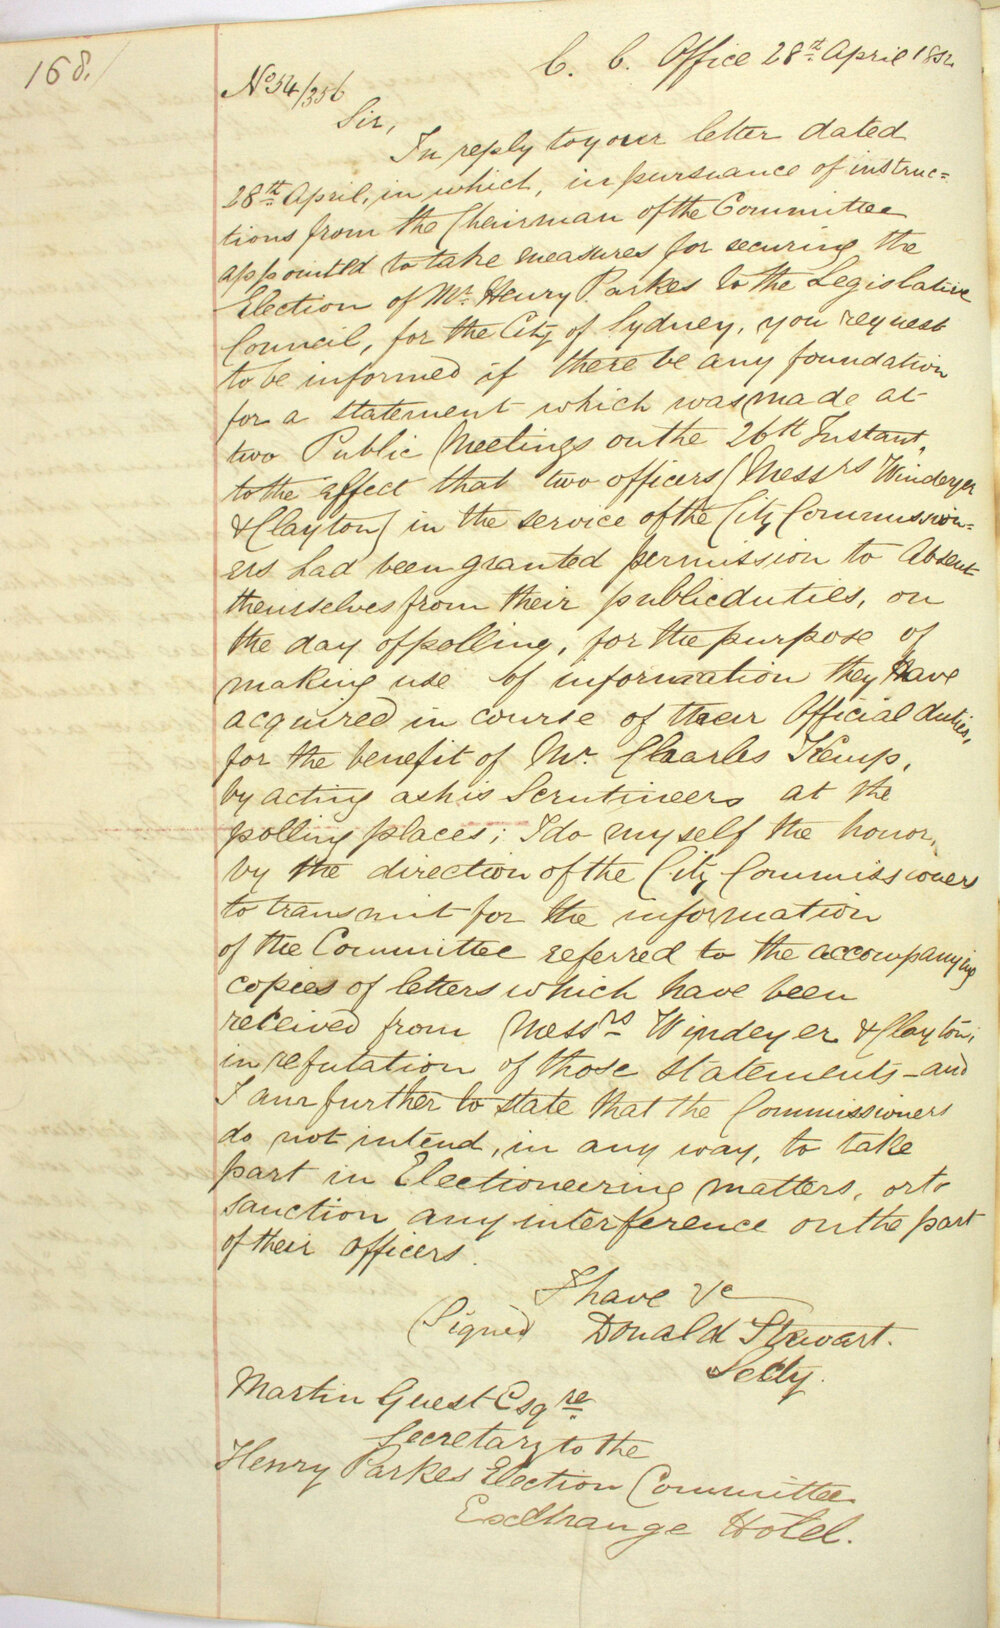 168.
C. C. Office 28th April 1854
No 54/356
Sir,
In reply to your letter dated
28th April, in which, in pursuance of instruc=
tions from the Chairman of the Committee
appointed to take measures for securing the
Election of Mr. Henry Parkes to the Legislative
Council, for the City of Sydney, you request
to be informed if there be any foundation
for a statement which was made at
two Public Meetings on the 26th Instant,
to the effect that two officers (Messrs Windeyer
& Clayton) in the service of the City Commission=
ers had been granted permission to Absent
themselves from their public duties, on
the day of polling, for the purpose of
making use of information they have
acquired in course of their Official duties,
for the benefit of Mr. Charles Kemp,
by acting as his Scrutineers at the
polling places; I do myself the honor,
by the direction of the City Commissioners
to transmit for the information
of the Committee referred to the accompanying
copies of letters which have been
received from Messrs Windeyer & Clayton,
in refutation of those statements – and
I am further to state that the Commissioners
do not intend, in any way, to take
part in Electioneering matters, or to
sanction any interference on the part
of their officers.
I have &c
(Signed) Donald Stewart.
Secty.
Martin Guest Esqre
Secretary to the
Henry Parkes Election Committee
Exchange Hotel.